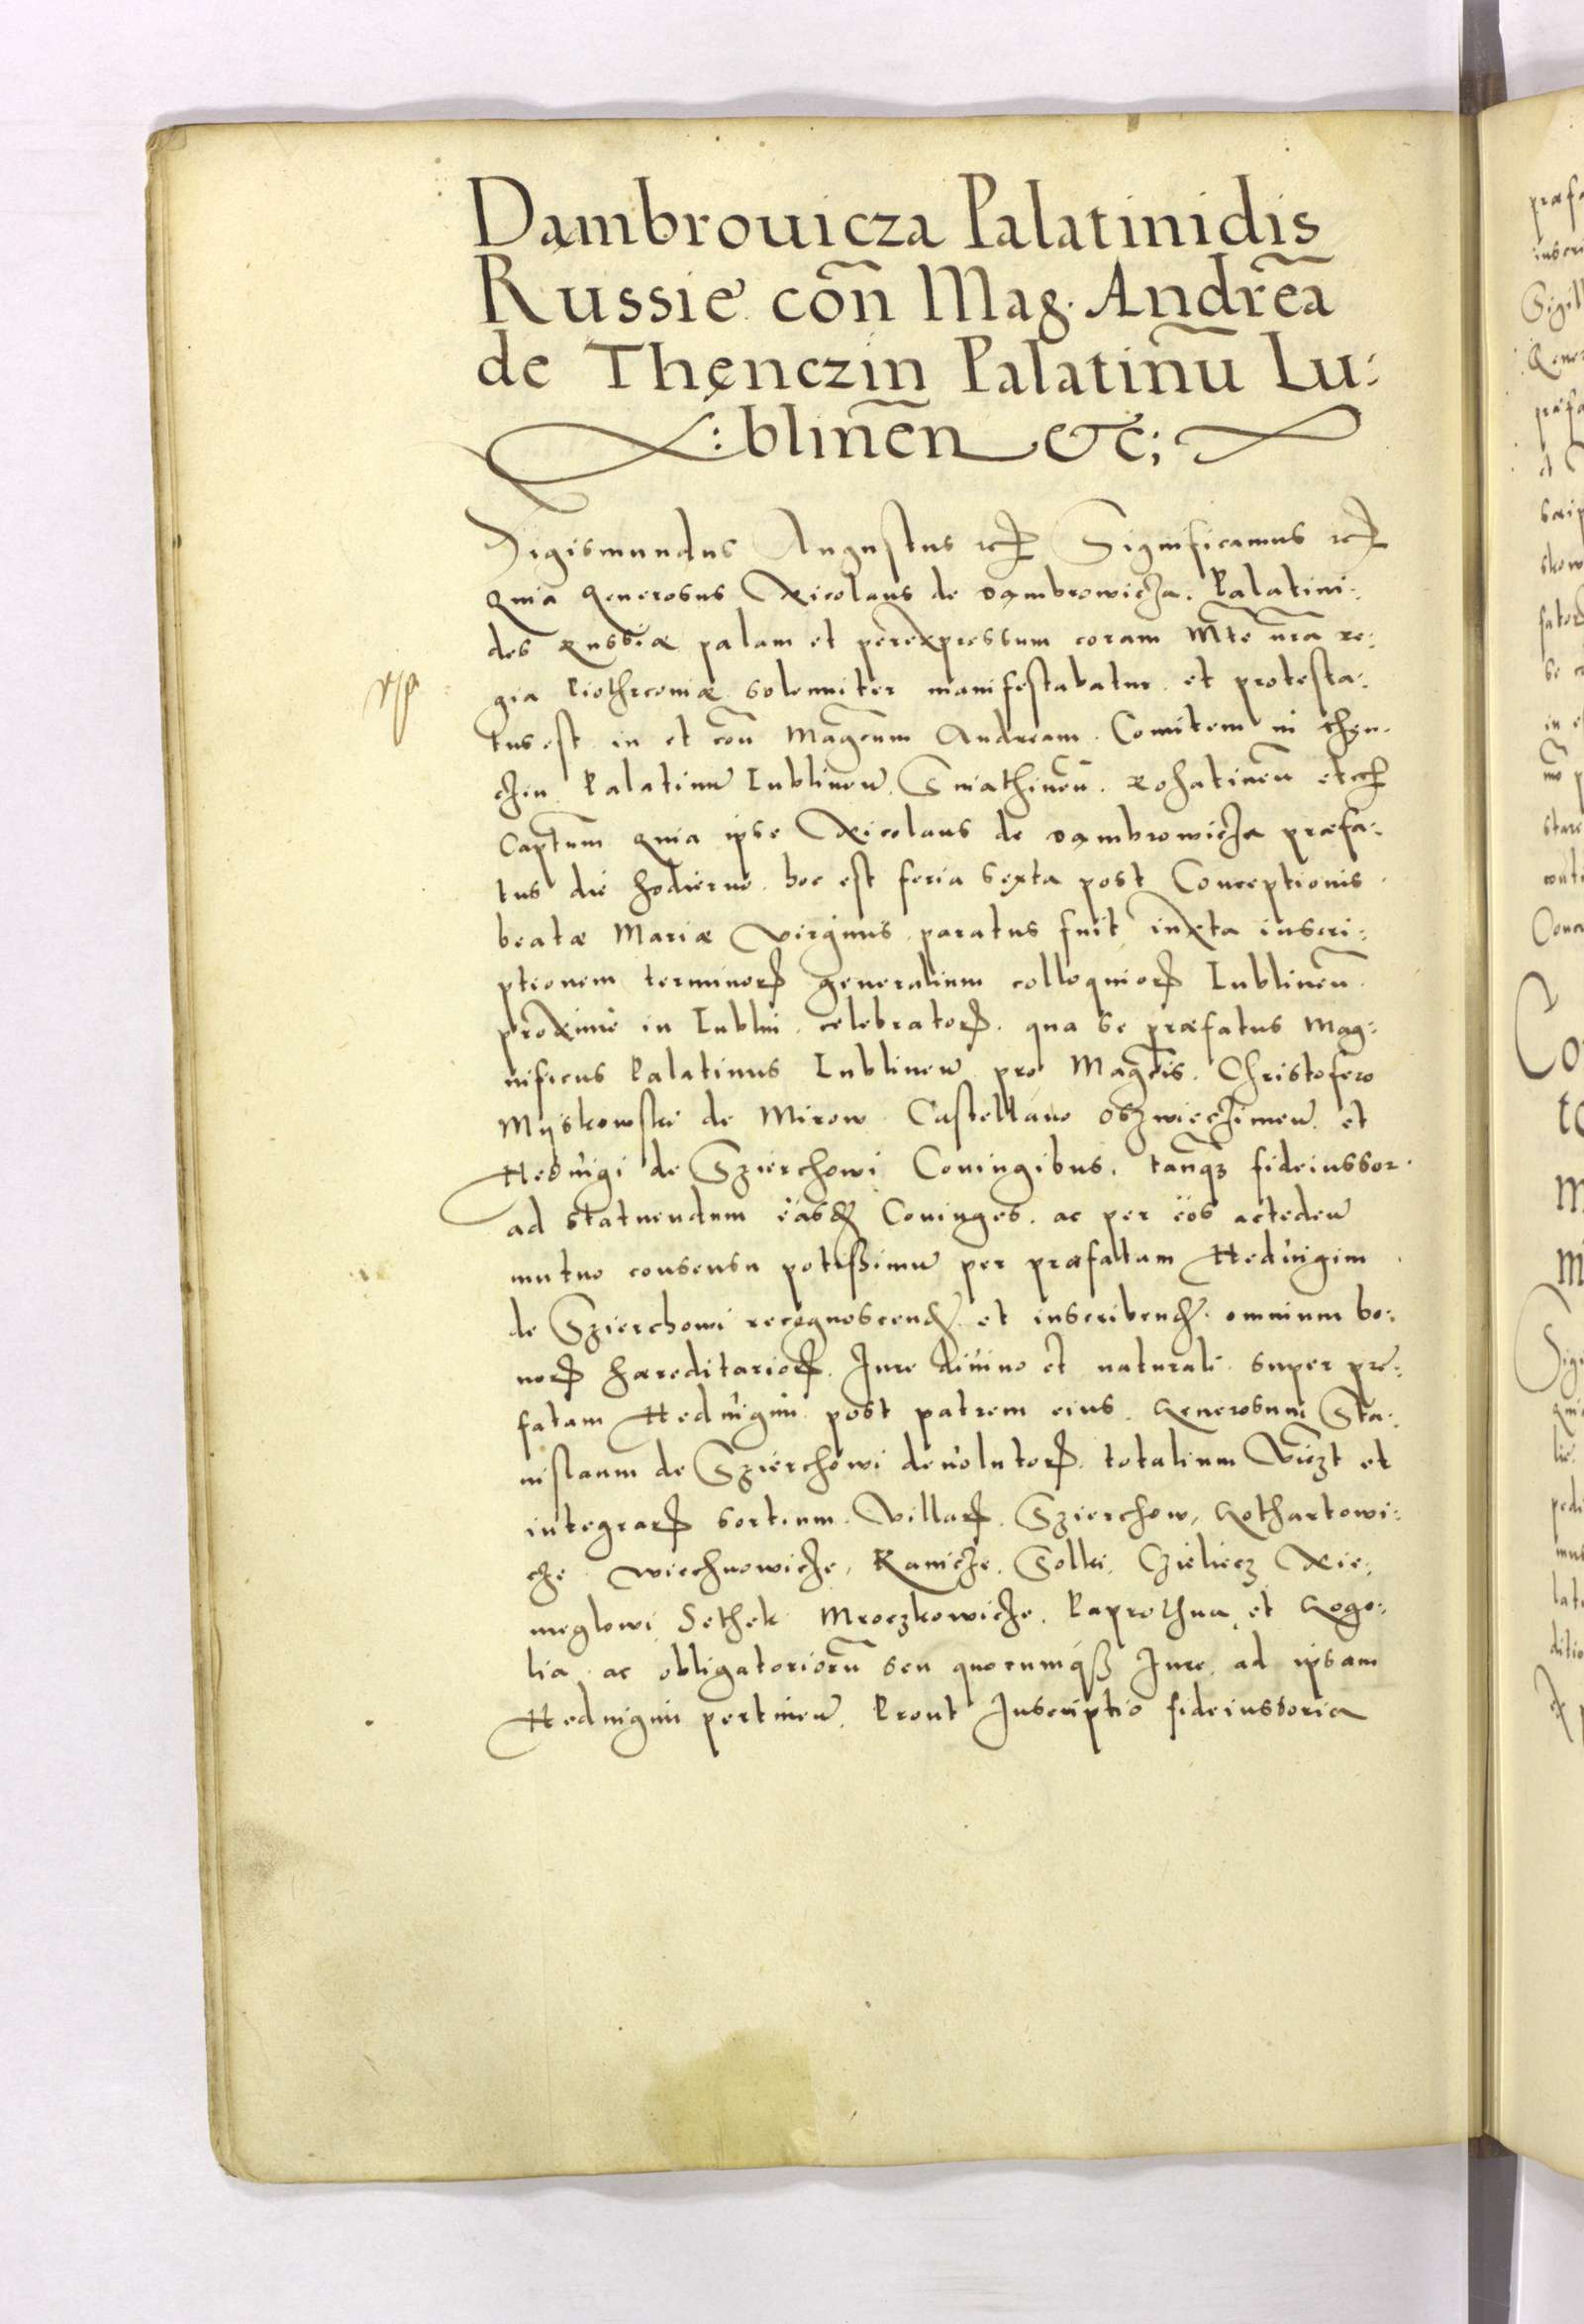 Dambrouicza Palatinidis
Russię cōn Mag. Andrēa
de Thęnczin Palatinū Lu:
:blinēn etc;
Sigismundus Augustus etc Significamus etc
Quia Generosus Nicolaus de Dąmbrowicza. Palatini:
des Russiæ palam et perexpressum coram Mte nra re:
gia Piothrconiæ solenniter manifestabatur et protesta:
tus est in et con Magcum Andream Comitem in Thęn:
czin Palatinu Lublinen. Sniathinen. Rohatinen etc
Captum quia ipse Nicolaus de Dąmbrowicza præfa:
tus die hodierno. hoc est feria sexta post Conceptionis
beatæ Mariæ Virginis paratus fuit iuxta inscri:
ptionem terminorʒ generalium colloquiorʒ Lublinen
proxime in Lublin celebratorʒ. qua se præfatus Mag:
nificus Palatinus Lublinen pro Magcis. Christofero
Myskowski de Mirow Castellano Oszwięczimen. et
Hedvigi de Szierchowi Coniugibus. tanqʒ fideiussor.
ad statuendum easdʒ Coniuges. ac per eos actedeu
mutuo consensu potißimu per præfatam Hedvigim
de Szierchowi recognoscendʒ et inscribendʒ. omnium bo:
norʒ hæreditariorʒ. Jure divino et naturali super præ:
fatam Hedvigim post patrem eius. Generosum Sta:
nislaum de Szierchowi devolutorʒ. totalium vidzt et
integrarʒ sortium. Villarʒ. Szierchow, Gothartowi:
cze Wiechnowicze, Kanicze. Solki. Czieliecz Nie:
meglowi. Sethek Mroczkowicze. Paprothna et Gogo:
lia ac obligatoriorum seu quocumqß Jure. ad ipsam
Hedvigim pertinen. Prout Inscriptio fideiussoria